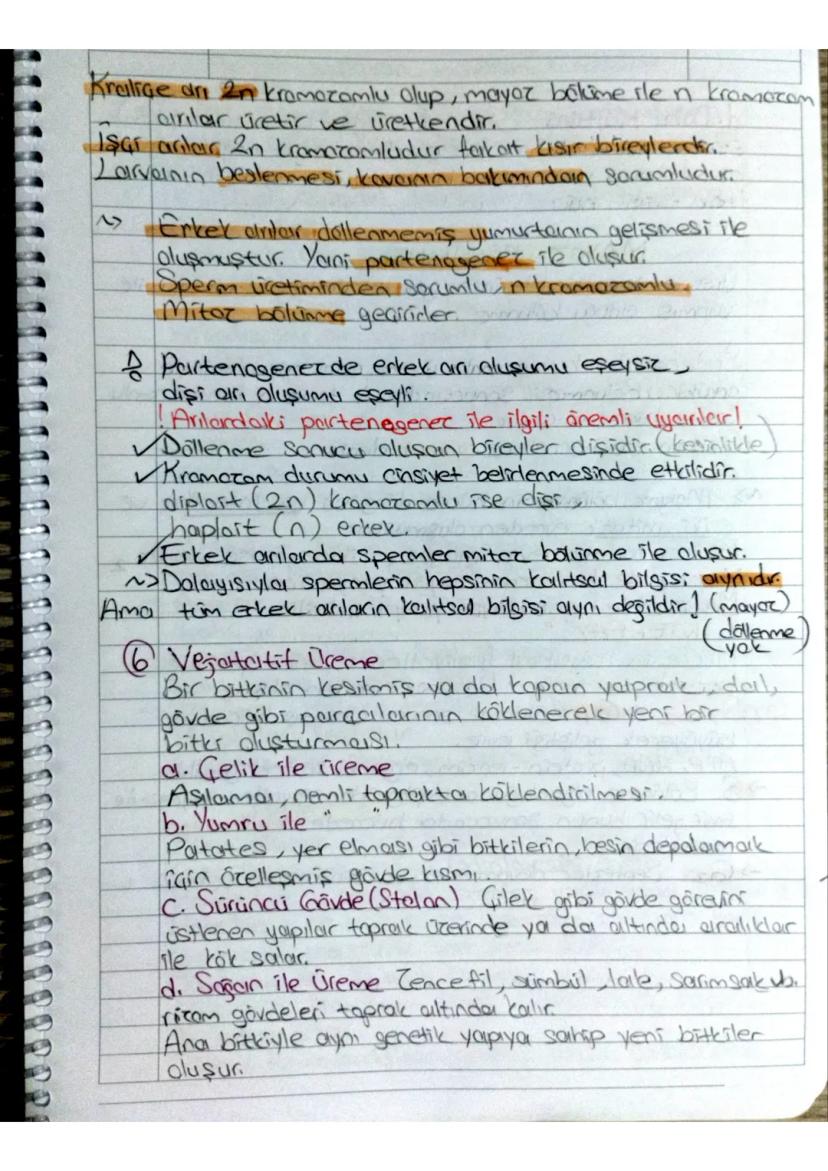 Kraliçe arı 2n kromozomlu olup, mayoz bölüme ile n kromozom
arılar üretir ve üretkendir.
İşçi arılar 2n kromozomludur fakat kısır bireylerdir.
Larvanın beslenmesi, kovanın bakımından sorumludur.
~> Erkek arılar döllenmemiş yumurtanın gelişmesi ile
oluşmuştur. Yani partenogenez ile oluşur.
Sperm üretiminden sorumlu, n kromozomlu.
Mitoz bölünme geçirirler.
Partenogenezde erkek arı oluşumu eşeysiz,
dişi arı oluşumu eşeyli.
! Arılardaki partenegenez ile ilgili önemli uyarılar!
✓ Döllenme sonucu oluşan bireyler dişidir. (kesinlikle)
✓ Kromozom durumu cinsiyet belirlenmesinde etkilidir.
diploit (2n) kromozomlu ise dişi,
haploit (n) erkek.
✓ Erkek arılarda spermler mitoz bölünme ile oluşur.
~> Dolayısıyla spermlerin hepsinin kalıtsal bilgisi aynıdır.
Ama tüm erkek arıların kalıtsal bilgisi aynı değildir! (mayoz)
(döllenme yok)
6 Vejatatif Üreme
Bir bitkinin kesilmiş ya da kopan yaprak, dal,
gövde gibi paraçalarının köklenerek yeni bir
bitki oluşturması.
a. Çelik ile üreme
Aşılama, nemli toprakta köklendirilmesi.
b. Yumru ile " "
Patates, yer elması gibi bitkilerin, besin depolamak
için özelleşmiş gövde kısmı.
c. Sürüncü Gövde (Stolon) Çilek gibi gövde görevini
üstlenen yapılar toprak üzerinde ya da altında aralıklar
ile kök salar.
d. Soğan ile Üreme Zencefil, sümbül, lale, sarımsak vb.
rizom gövdeleri toprak altında kalır.
Ana bitkiyle aynı genetik yapıya sahip yeni bitkiler
oluşur.